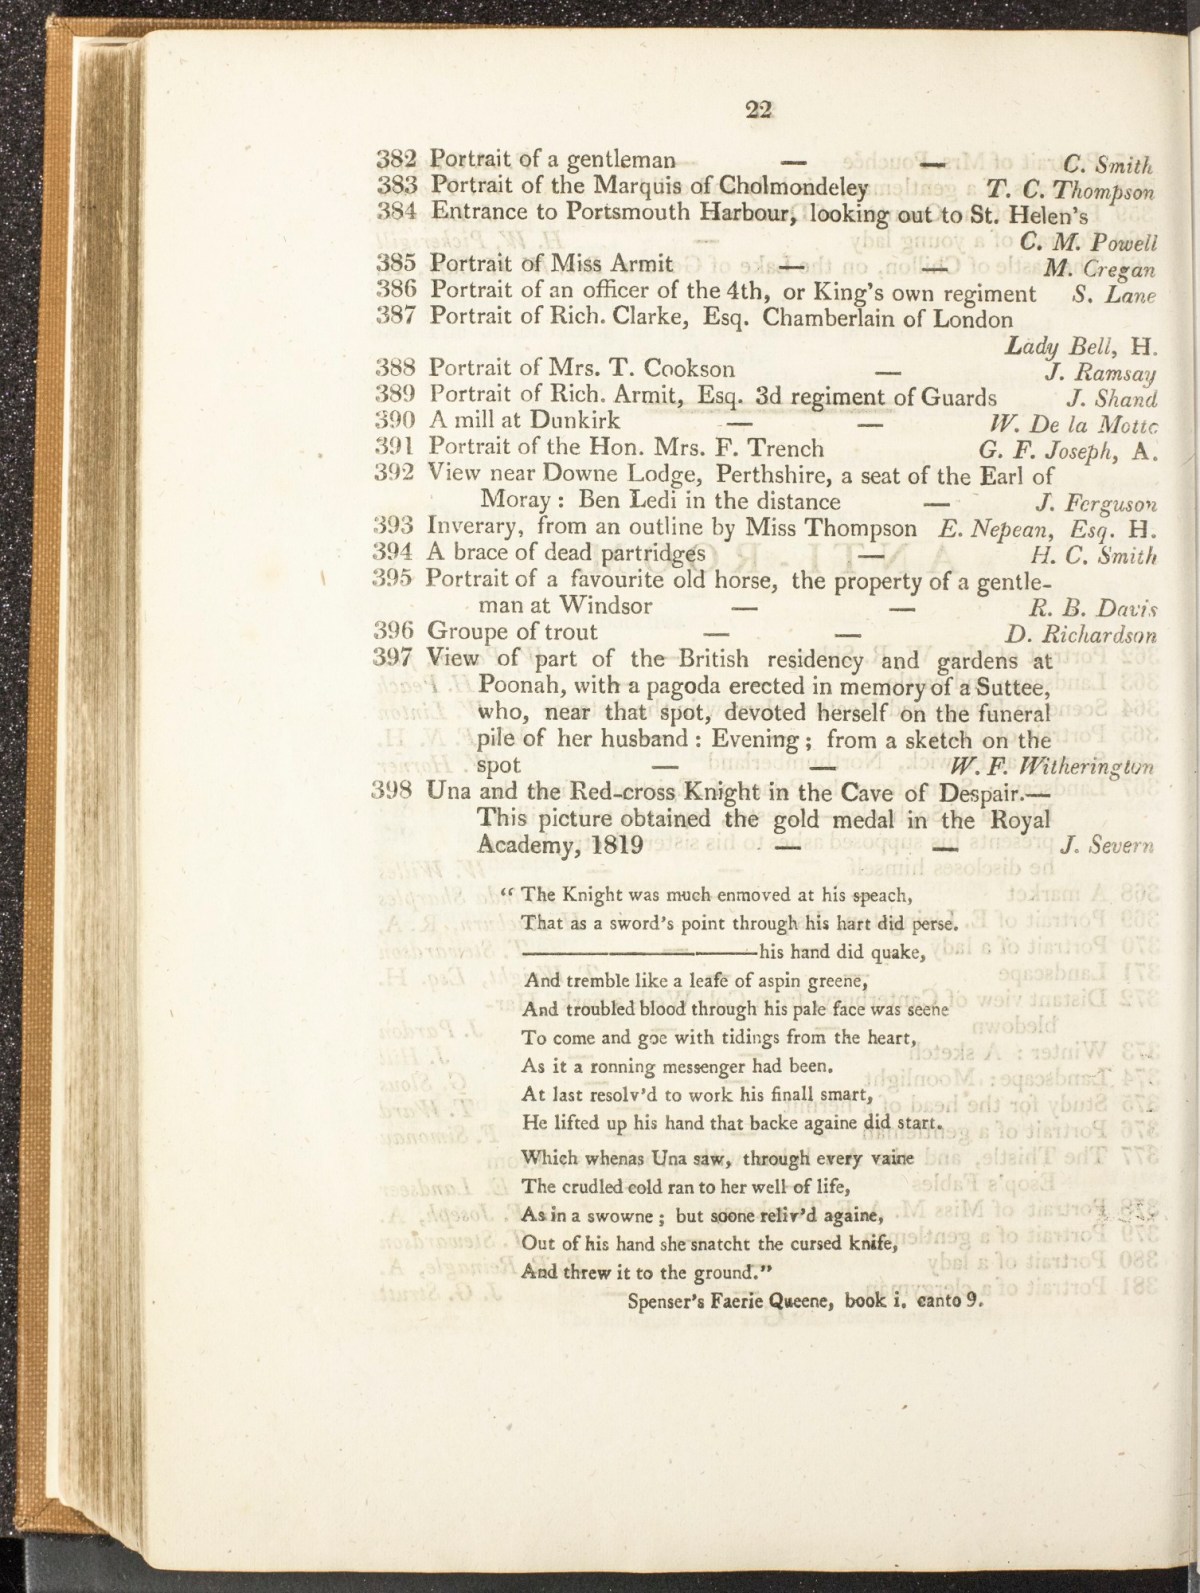 22
382 Portrait of a gentleman — — C. Smith
383 Portrait of the Marquis of Cholmondeley T. C. Thompson
384 Entrance to Portsmouth Harbour, looking out to St. Helen's
C. M. Powell
385 Portrait of Miss Armit — — M. Cregan
386 Portrait of an officer of the 4th, or King's own regiment S. Lane
387 Portrait of Rich. Clarke, Esq. Chamberlain of London
Lady Bell, H.
388 Portrait of Mrs. T. Cookson — J. Ramsay
389 Portrait of Rich. Armit, Esq. 3d regiment of Guards J. Shand
390 A mill at Dunkirk — — W. De la Motte
391 Portrait of the Hon. Mrs. F. Trench G. F. Joseph, A.
392 View near Downe Lodge, Perthshire, a seat of the Earl of
Moray : Ben Ledi in the distance — J. Ferguson
393 Inverary, from an outline by Miss Thompson E. Nepean, Esq. H.
394 A brace of dead partridges — H. C. Smith
395 Portrait of a favourite old horse, the property of a gentle-
man at Windsor — — R. B. Davis
396 Groupe of trout — — D. Richardson
397 View of part of the British residency and gardens at
Poonah, with a pagoda erected in memory of a Suttee,
who, near that spot, devoted herself on the funeral
pile of her husband : Evening ; from a sketch on the
spot — — W. F. Witherington
398 Una and the Red-cross Knight in the Cave of Despair.—
This picture obtained the gold medal in the Royal
Academy, 1819 — — J. Severn
“ The Knight was much enmoved at his speach,
That as a sword's point through his hart did perse.
——————his hand did quake,
And tremble like a leafe of aspin greene,
And troubled blood through his pale face was seene
To come and goe with tidings from the heart,
As it a ronning messenger had been.
At last resolv'd to work his finall smart,
He lifted up his hand that backe againe did start.
Which whenas Una saw, through every vaine
The crudled cold ran to her well of life,
As in a swowne ; but soone reliv'd againe,
Out of his hand she snatcht the cursed knife,
And threw it to the ground.”
Spenser's Faerie Queene, book i. canto 9.